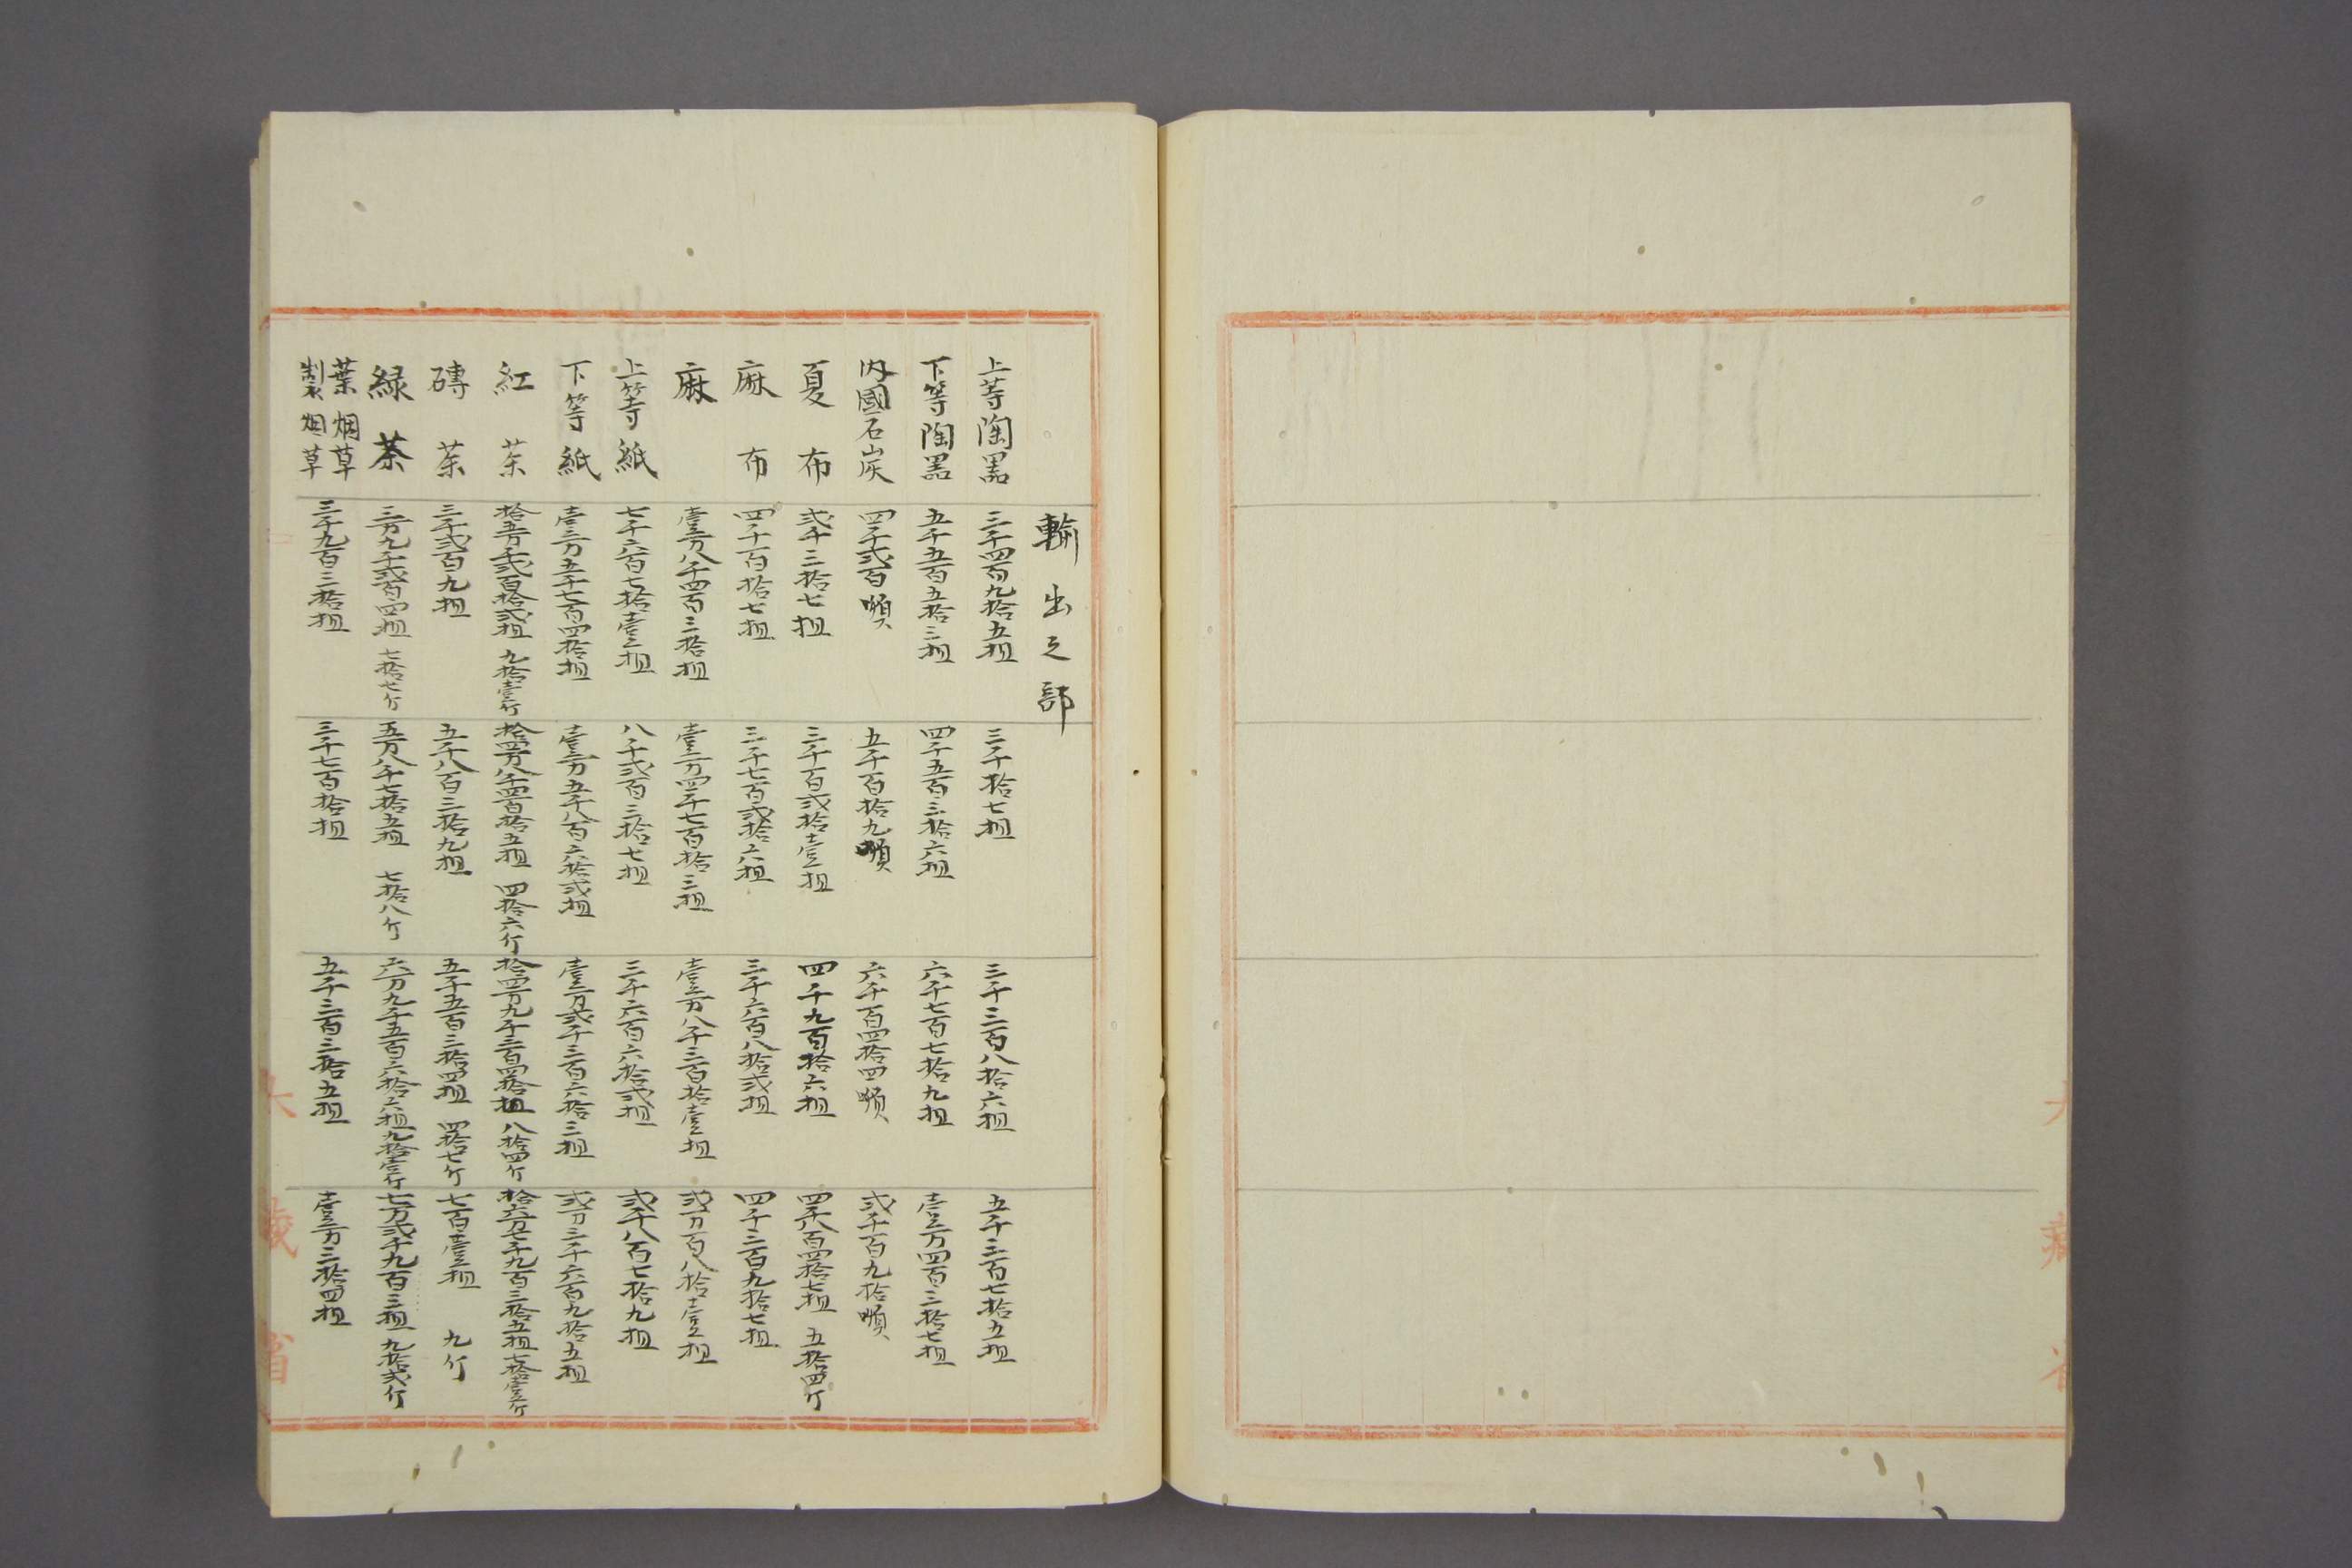 輸出之部
上等陶噐 三千四百九拾五担 三千拾七担 三千三百八拾六担 五千三百七拾五担
下等陶噐 五千五百五拾三担 四千五百三拾六担 六千七百七拾九担 壹万四百三拾七担
内國石炭 四千弐百噸 五千百拾九噸 六千百四拾四噸 弐千百九拾噸
夏布 弐千三拾七担 三千百弐拾壹担 四千九百拾六担 四千八百四拾七担 五拾四斤
麻布 四千百拾七担 三千七百弐拾六担 三千六百八拾弐担 四千三百九拾七担
麻 壹万八千四百三拾担 壹万四千七百拾三担 壹万八千三百拾壹担 弐万百八拾壹担
上等紙 七千六百七拾壹担 八千弐百三拾七担 三千六百六拾弐担 弐千八百七拾九担
下等紙 壹万五千七百四拾担 壹万五千八百六拾弐担 壹万弐千三百六拾三担 弐万三千六百九拾五担
紅茶 拾五万千弐百拾弐担 九拾壹斤 拾四万八千四百拾五担 四拾六斤 拾四万九千三百四拾担 八拾四斤 拾六万七千九百三拾五担 七拾壹斤
磚茶 三千弐百九担 五千八百三拾九担 五千五百三拾四担 四拾七斤 七百壹担 九斤
緑茶 三万九千弐百四担 七拾七斤 五万八千七拾五担 七拾八斤 六万九千五百六拾六担 九拾壹斤 七万弐千九百三担 九拾弐斤
葉烟草 製烟草 三千九百三拾担 三千七百拾担 五千三百三拾五担 壹万三拾四担
大藏省